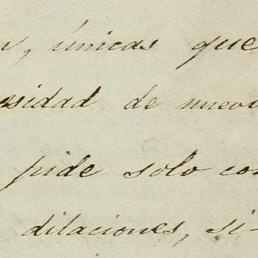 , únicas que
esidad de nuev
pide solo con
dilaciones, si-